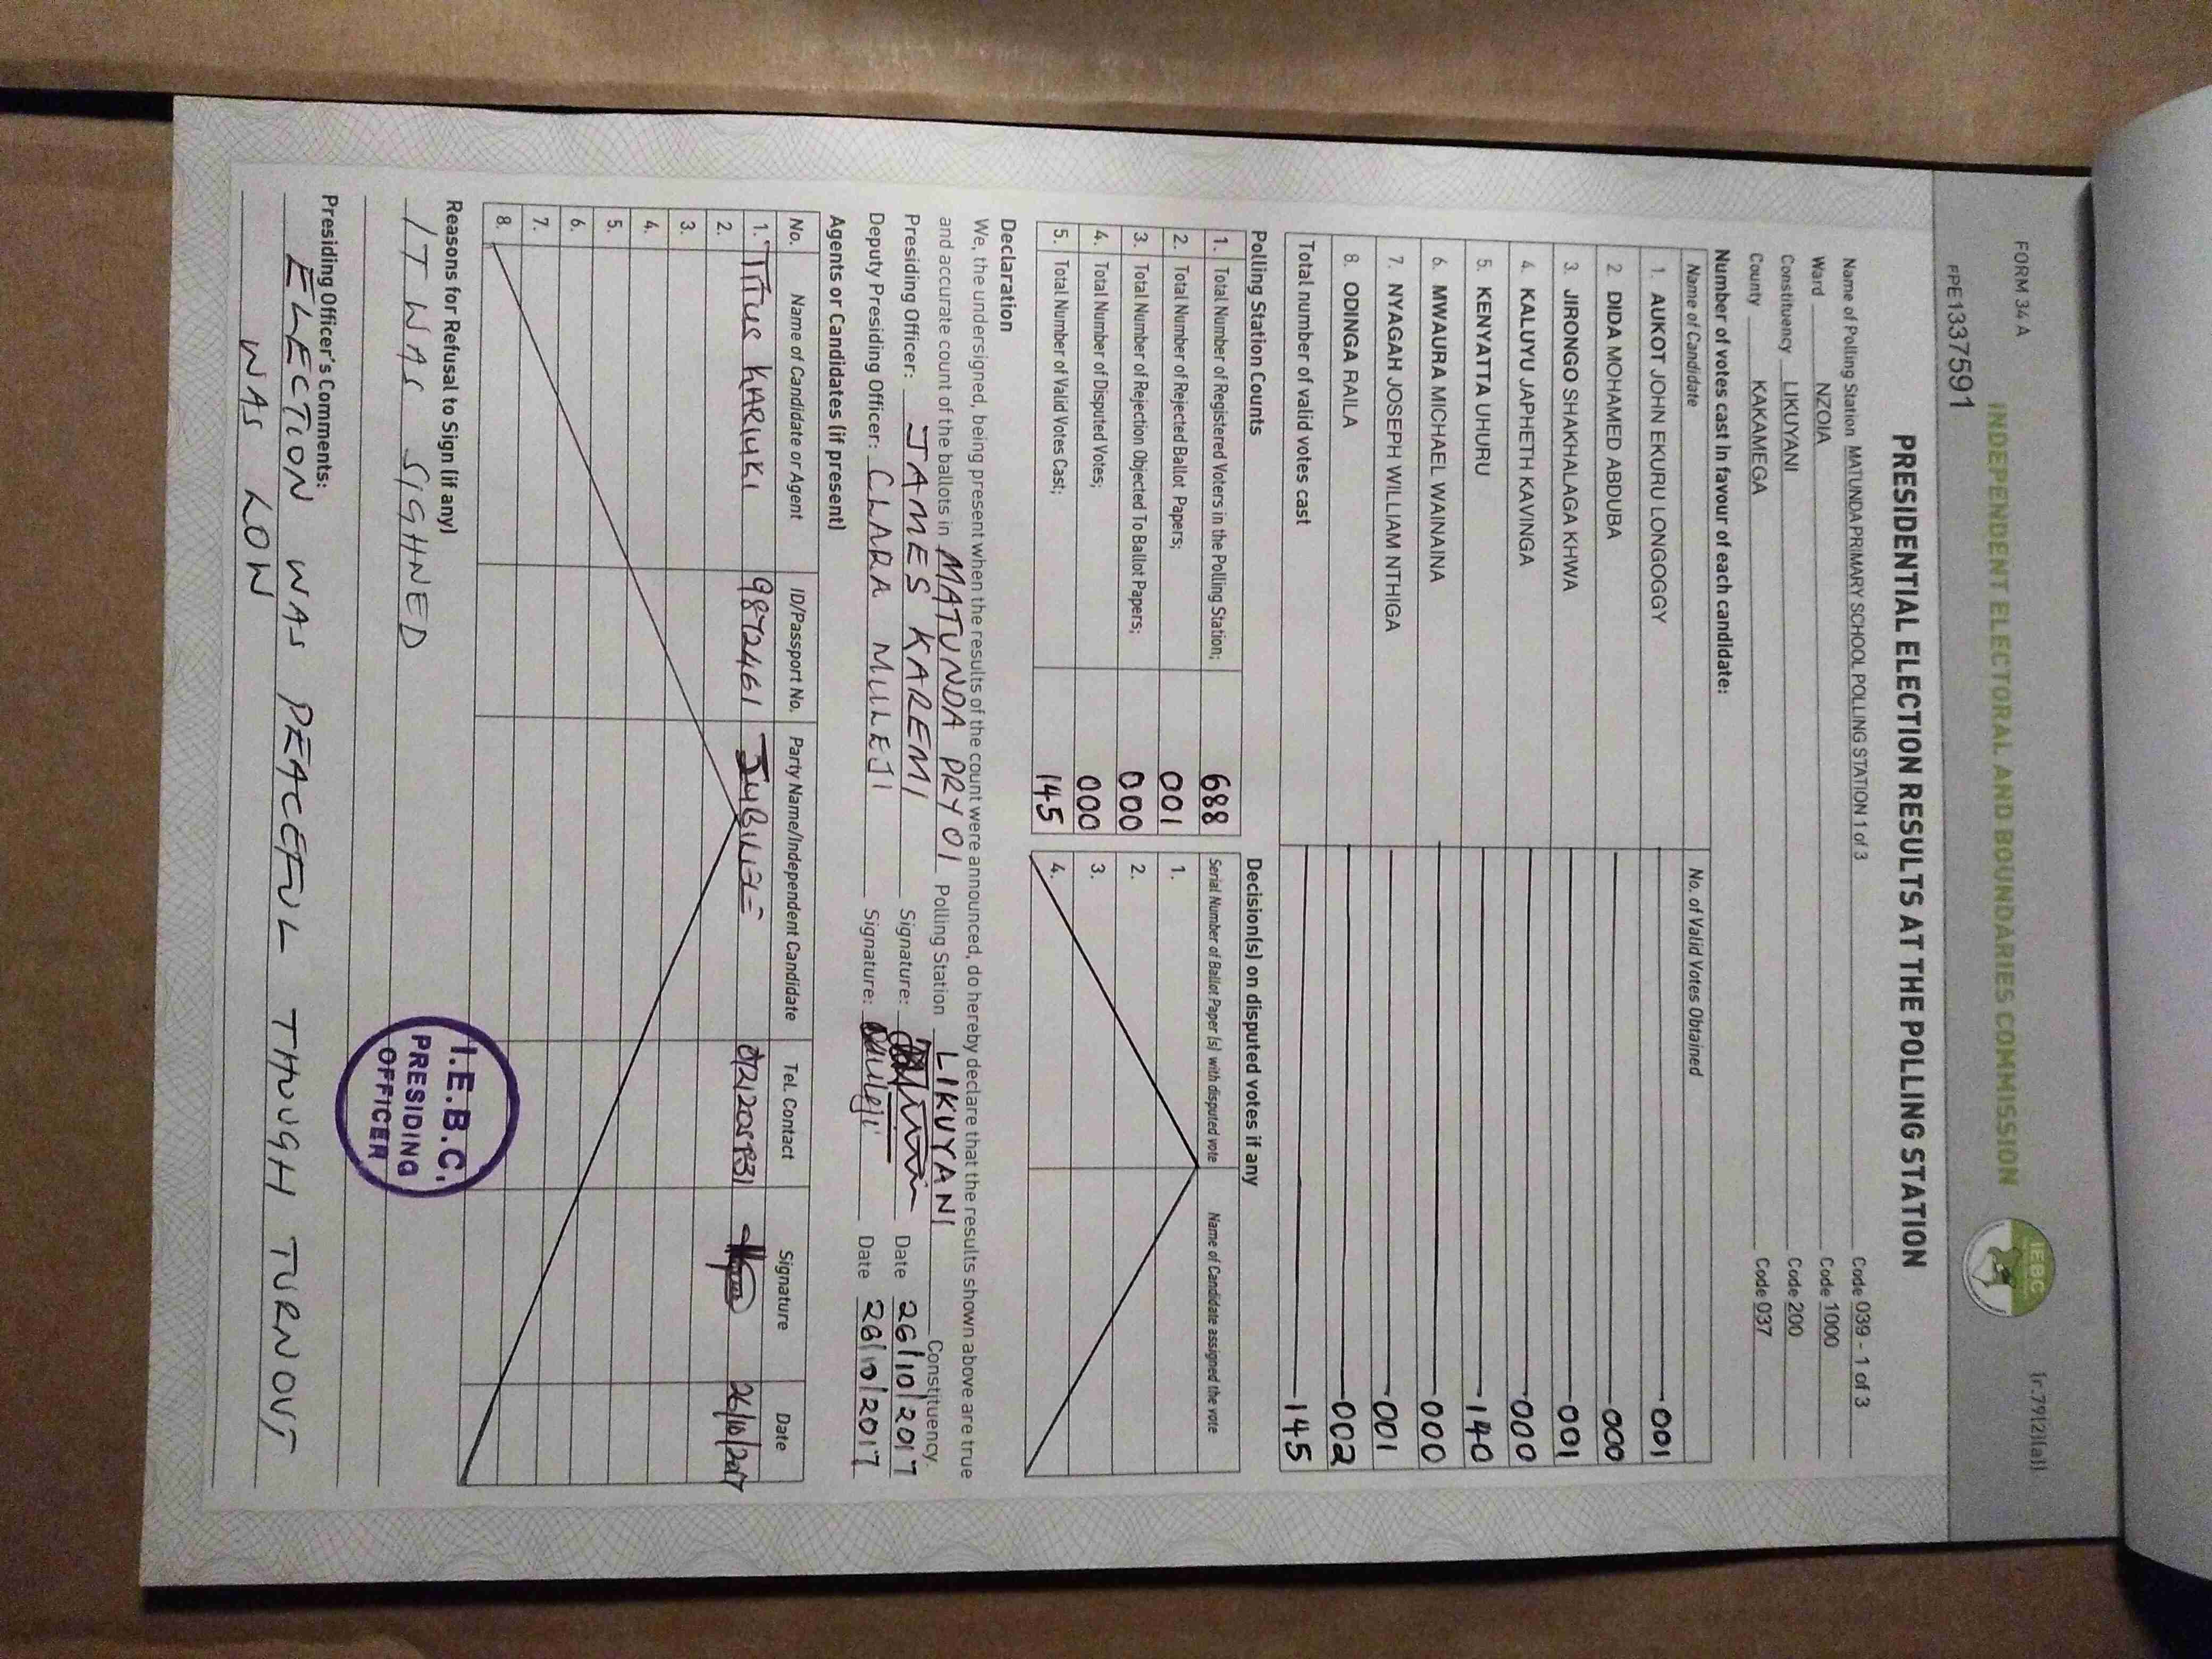 FORM 34 A
(r.79(2)(a))
INDEPENDENT ELECTORAL AND BOUNDARIES COMMISSION
IEBC
FPE133759 1
PRESIDENTIAL ELECTION RESULTS AT THE POLLING STATION
Name of Polling Station MATUNDA PRIMARY SCHOOL POLLING STATION 1 of 3 Code 039 - 1 of 3
Ward NZOIA Code 1000
Constituency LIKUYANI Code 200
County KAKAMEGA Code 037
Number of votes cast in favour of each candidate:
Name of Candidate No. of Valid Votes Obtained
1. AUKOT JOHN EKURU LONGOGGY 001
2. DIDA MOHAMED ABDUBA 000
3. JIRONGO SHAKHALAGA KHWA 001
4. KALUYU JAPHETH KAVINGA 000
5. KENYATTA UHURU 140
6. MWAURA MICHAEL WAINAINA 000
7. NYAGAH JOSEPH WILLIAM NTHIGA 001
8. ODINGA RAILA 002
Total number of valid votes cast 145
Polling Station Counts
1. Total Number of Registered Voters in the Polling Station; 688
2. Total Number of Rejected Ballot Papers; 001
3. Total Number of Rejection Objected To Ballot Papers; 000
4. Total Number of Disputed Votes; 000
5. Total Number of Valid Votes Cast; 145
Decision(s) on disputed votes if any
Serial Number of Ballot Paper (s) with disputed vote Name of Candidate assigned the vote
1.
2.
3.
4.
Declaration
We, the undersigned, being present when the results of the count were announced, do hereby declare that the results shown above are true
and accurate count of the ballots in MATUNDA PRY 01 Polling Station LIKUYANI Constituency.
Presiding Officer: JAMES KAREMI Signature: Date 26/10/2017
Deputy Presiding Officer: CLARA MULEJI Signature: Muleji Date 26/10/2017
Agents or Candidates (if present)
No. Name of Candidate or Agent ID/Passport No. Party Name/Independent Candidate Tel. Contact Signature Date
1. Titus KARIUKI 9872461 JUBILEE 26/10/2017
2.
3.
4.
5.
6.
7.
8.
Reasons for Refusal to Sign (if any)
IT WAS SIGHNED
I.E.B.C.
PRESIDING
OFFICER
Presiding Officer's Comments:
ELECTION WAS PEACEFUL THOUGH TURNOUT
WAS LOW